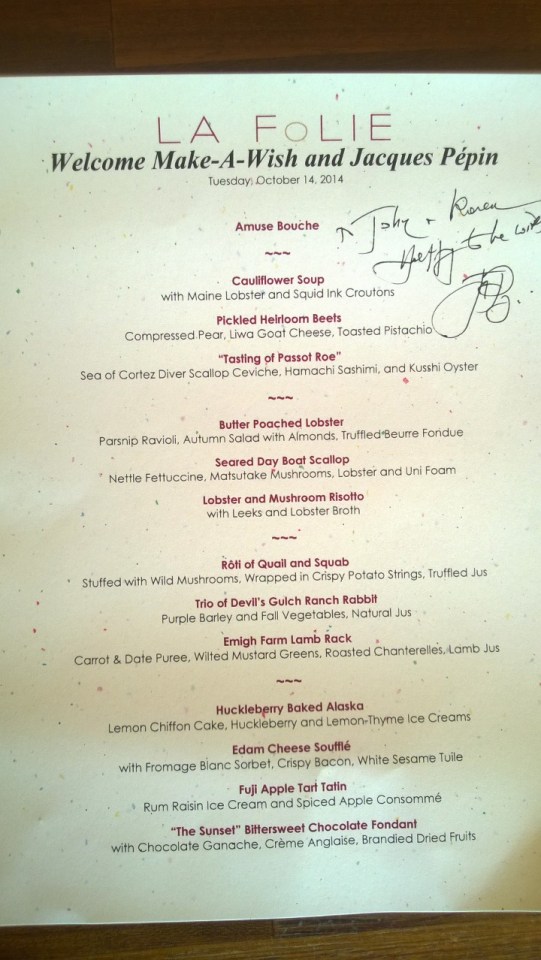 LA FOLIE
Welcome Make-A-Wish and Jacques Pépin
Tuesday, October 14, 2014
Amuse Bouche
~~~
Cauliflower Soup
with Maine Lobster and Squid Ink Croutons
Pickled Heirloom Beets
Compressed Pear, Liwa Goat Cheese, Toasted Pistachio
"Tasting of Passot Roe"
Sea of Cortez Diver Scallop Ceviche, Hamachi Sashimi, and Kusshi Oyster
~~~
Butter Poached Lobster
Parsnip Ravioli, Autumn Salad with Almonds, Truffled Beurre Fondue
Seared Day Boat Scallop
Nettle Fettuccine, Matsutake Mushrooms, Lobster and Uni Foam
Lobster and Mushroom Risotto
with Leeks and Lobster Broth
~~~
Rôti of Quail and Squab
Stuffed with Wild Mushrooms, Wrapped in Crispy Potato Strings, Truffled Jus
Trio of Devil's Gulch Ranch Rabbit
Purple Barley and Fall Vegetables, Natural Jus
Emigh Farm Lamb Rack
Carrot & Date Puree, Wilted Mustard Greens, Roasted Chanterelles, Lamb Jus
~~~
Huckleberry Baked Alaska
Lemon Chiffon Cake, Huckleberry and Lemon-Thyme Ice Creams
Edam Cheese Soufflé
with Fromage Blanc Sorbet, Crispy Bacon, White Sesame Tuile
Fuji Apple Tart Tatin
Rum Raisin Ice Cream and Spiced Apple Consommé
"The Sunset" Bittersweet Chocolate Fondant
with Chocolate Ganache, Crème Anglaise, Brandied Dried Fruits
+ Karen
to be